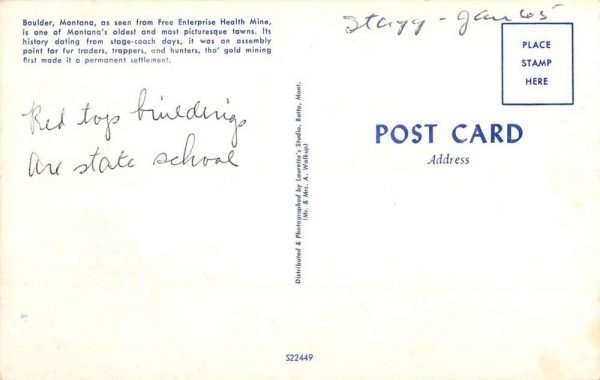 Boulder, Montana, as seen from Free Enterprise Health Mine,
is one of Montana's oldest and most picturesque towns. Its
history dating from stage-coach days, it was an assembly
point for fur traders, trappers, and hunters, tho' gold mining
first made it a permanent settlement.
Stagg - Jan 65
PLACE
STAMP
HERE
Red tops buildings
are state school
Distributed & Photographed by Lauretta's Studio, Butte, Mont.
(Mr. & Mrs. A. Walkup)
POST CARD
Address
S22449